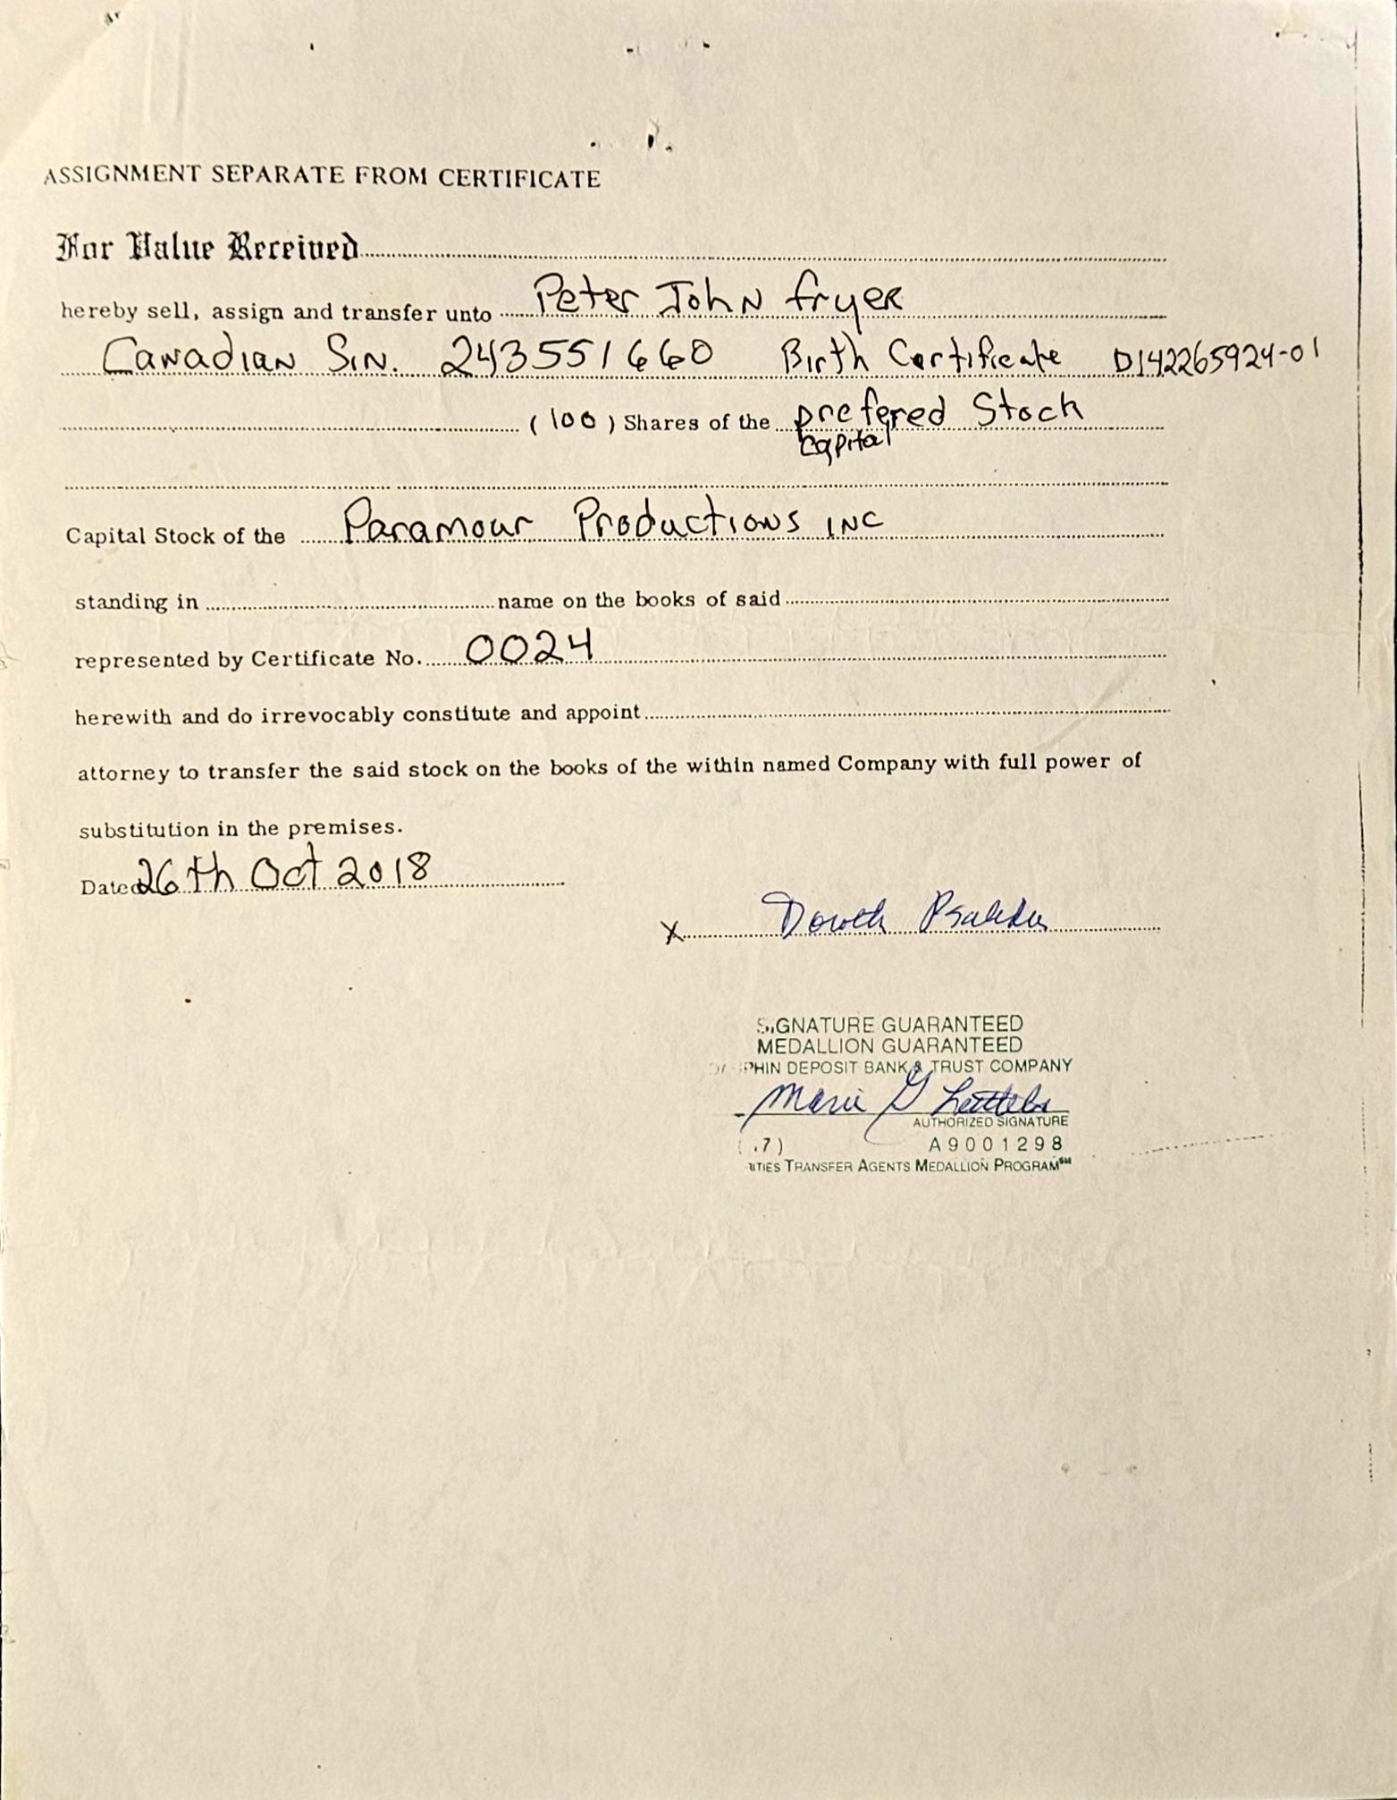 ASSIGNMENT SEPARATE FROM CERTIFICATE
For Value Received
hereby sell, assign and transfer unto Peter John fryer
Canadian SiN. 243551660 Birth Certificate D142265924-01
(100) Shares of the prefered Stock
Capital
Capital Stock of the Paramour Productions INC
standing in name on the books of said
represented by Certificate No. 0024
herewith and do irrevocably constitute and appoint
attorney to transfer the said stock on the books of the within named Company with full power of
substitution in the premises.
Dated 26th Oct 2018
X
SIGNATURE GUARANTEED
MEDALLION GUARANTEED
PHIN DEPOSIT BANK & TRUST COMPANY
Marie G
AUTHORIZED SIGNATURE
7) A9001298
TIES TRANSFER AGENTS MEDALLION PROGRAM℠